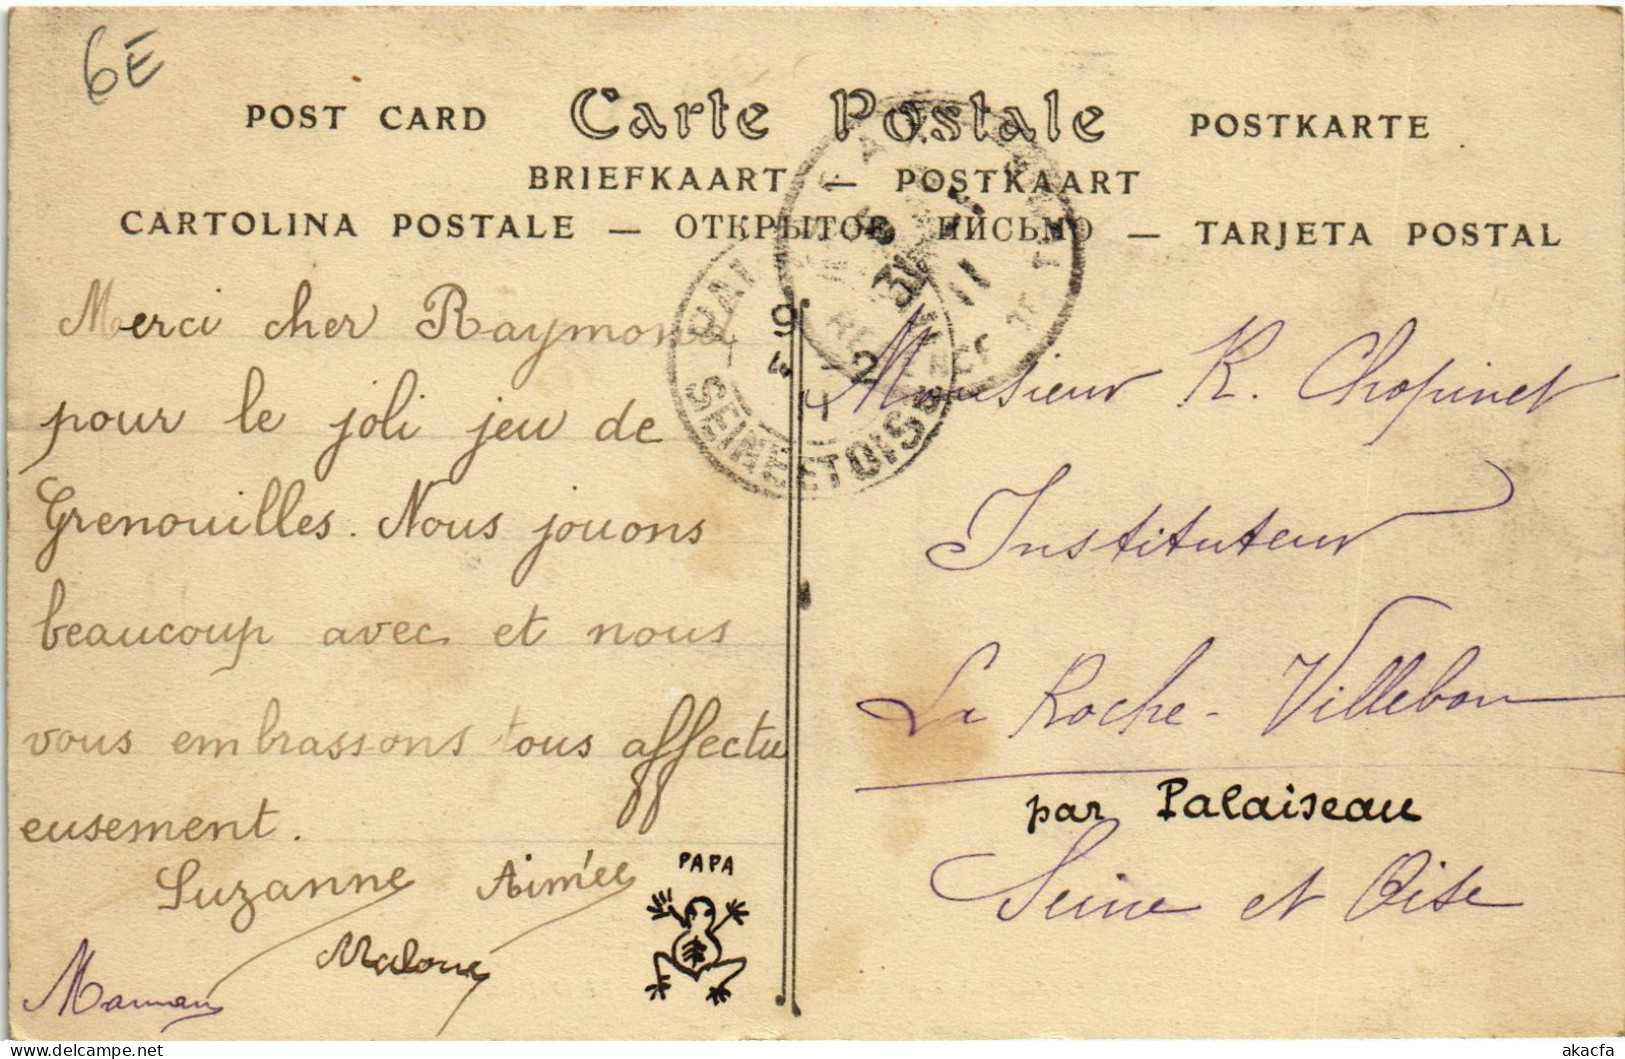 6E
POST CARD Carte Postale POSTKARTE
BRIEFKAART — POSTKAART
CARTOLINA POSTALE — ОТКРЫТОЕ ПИСЬМО — TARJETA POSTAL
Merci cher Raymond
pour le joli jeu de
Grenouilles. Nous jouons
beaucoup avec et nous
vous embrassons tous affectu
eusement.
Suzanne Aimée
Maman
PAPA
9
4 - 2
11
SEINE ET OISE
11
Monsieur R. Chopinet
Instituteur
La Roche-Villebon
par Palaiseau
Seine et Oise
akacfa